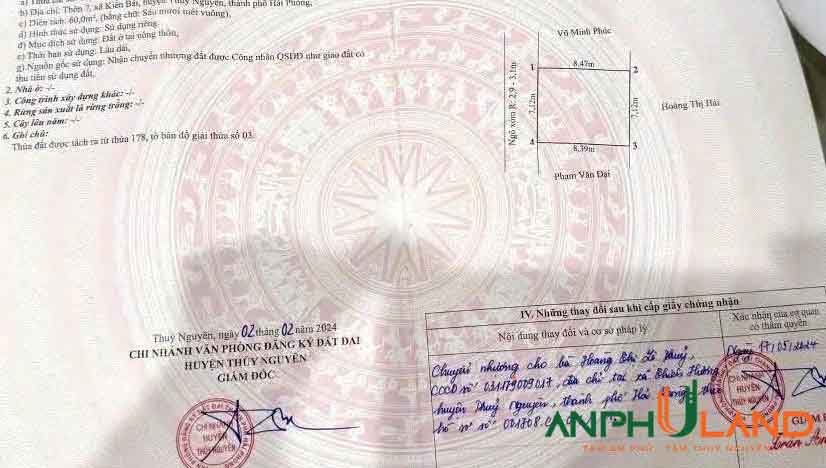 b) Địa chỉ: Thôn 7, xã Kiền Bái, huyện Thủy Nguyên, thành phố Hải Phòng,
c) Diện tích: 60,0m², (bằng chữ: Sáu mươi mét vuông),
d) Hình thức sử dụng: Sử dụng riêng,
đ) Mục đích sử dụng: Đất ở tại nông thôn,
e) Thời hạn sử dụng: Lâu dài,
g) Nguồn gốc sử dụng: Nhận chuyển nhượng đất được Công nhận QSDĐ như giao đất có
thu tiền sử dụng đất,
2. Nhà ở: -/-
3. Công trình xây dựng khác: -/-
4. Rừng sản xuất là rừng trồng: -/-
5. Cây lâu năm: -/-
6. Ghi chú:
Thửa đất được tách ra từ thửa 178, tờ bản đồ giải thửa số 03.
Vũ Minh Phúc
1
8,47m
2
Ngõ xóm R: 2,9 - 3,1m
7,12m
7,12m
Hoàng Thị Hải
4
8,39m
3
Phạm Văn Đại
Thuỷ Nguyên, ngày 02 tháng 02 năm 2024
CHI NHÁNH VĂN PHÒNG ĐĂNG KÝ ĐẤT ĐAI
HUYỆN THỦY NGUYÊN
GIÁM ĐỐC
CHI NHÁNH
HUYỆN
THỦY NGUYÊN
IV. Những thay đổi sau khi cấp giấy chứng nhận
Nội dung thay đổi và cơ sở pháp lý
Xác nhận của cơ quan
có thẩm quyền
Chuyển nhượng cho bà Hoàng Thị Lệ Thuỷ,
CCCD số: 031179009017, địa chỉ tại xã
huyện Thuỷ Nguyên, thành phố Hải Phòng, theo
hồ sơ số
Ngày 17/05/2024
CHI NHÁNH
HUYỆN
THỦY NGUYÊN
GIÁM Đ
ANPHULAND
TÂM AN PHÚ - TẦM THỦY NGUYÊN